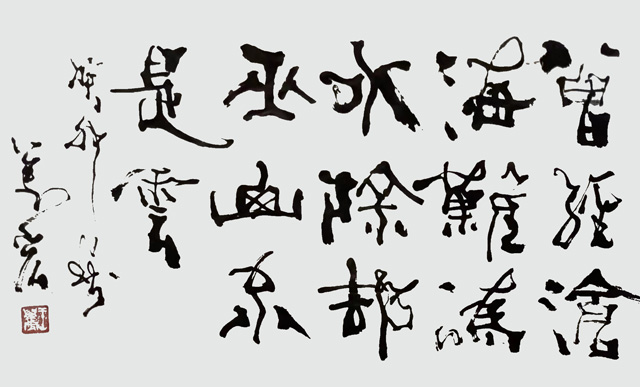 曾經滄
海難為
水除卻
巫山不
是雲